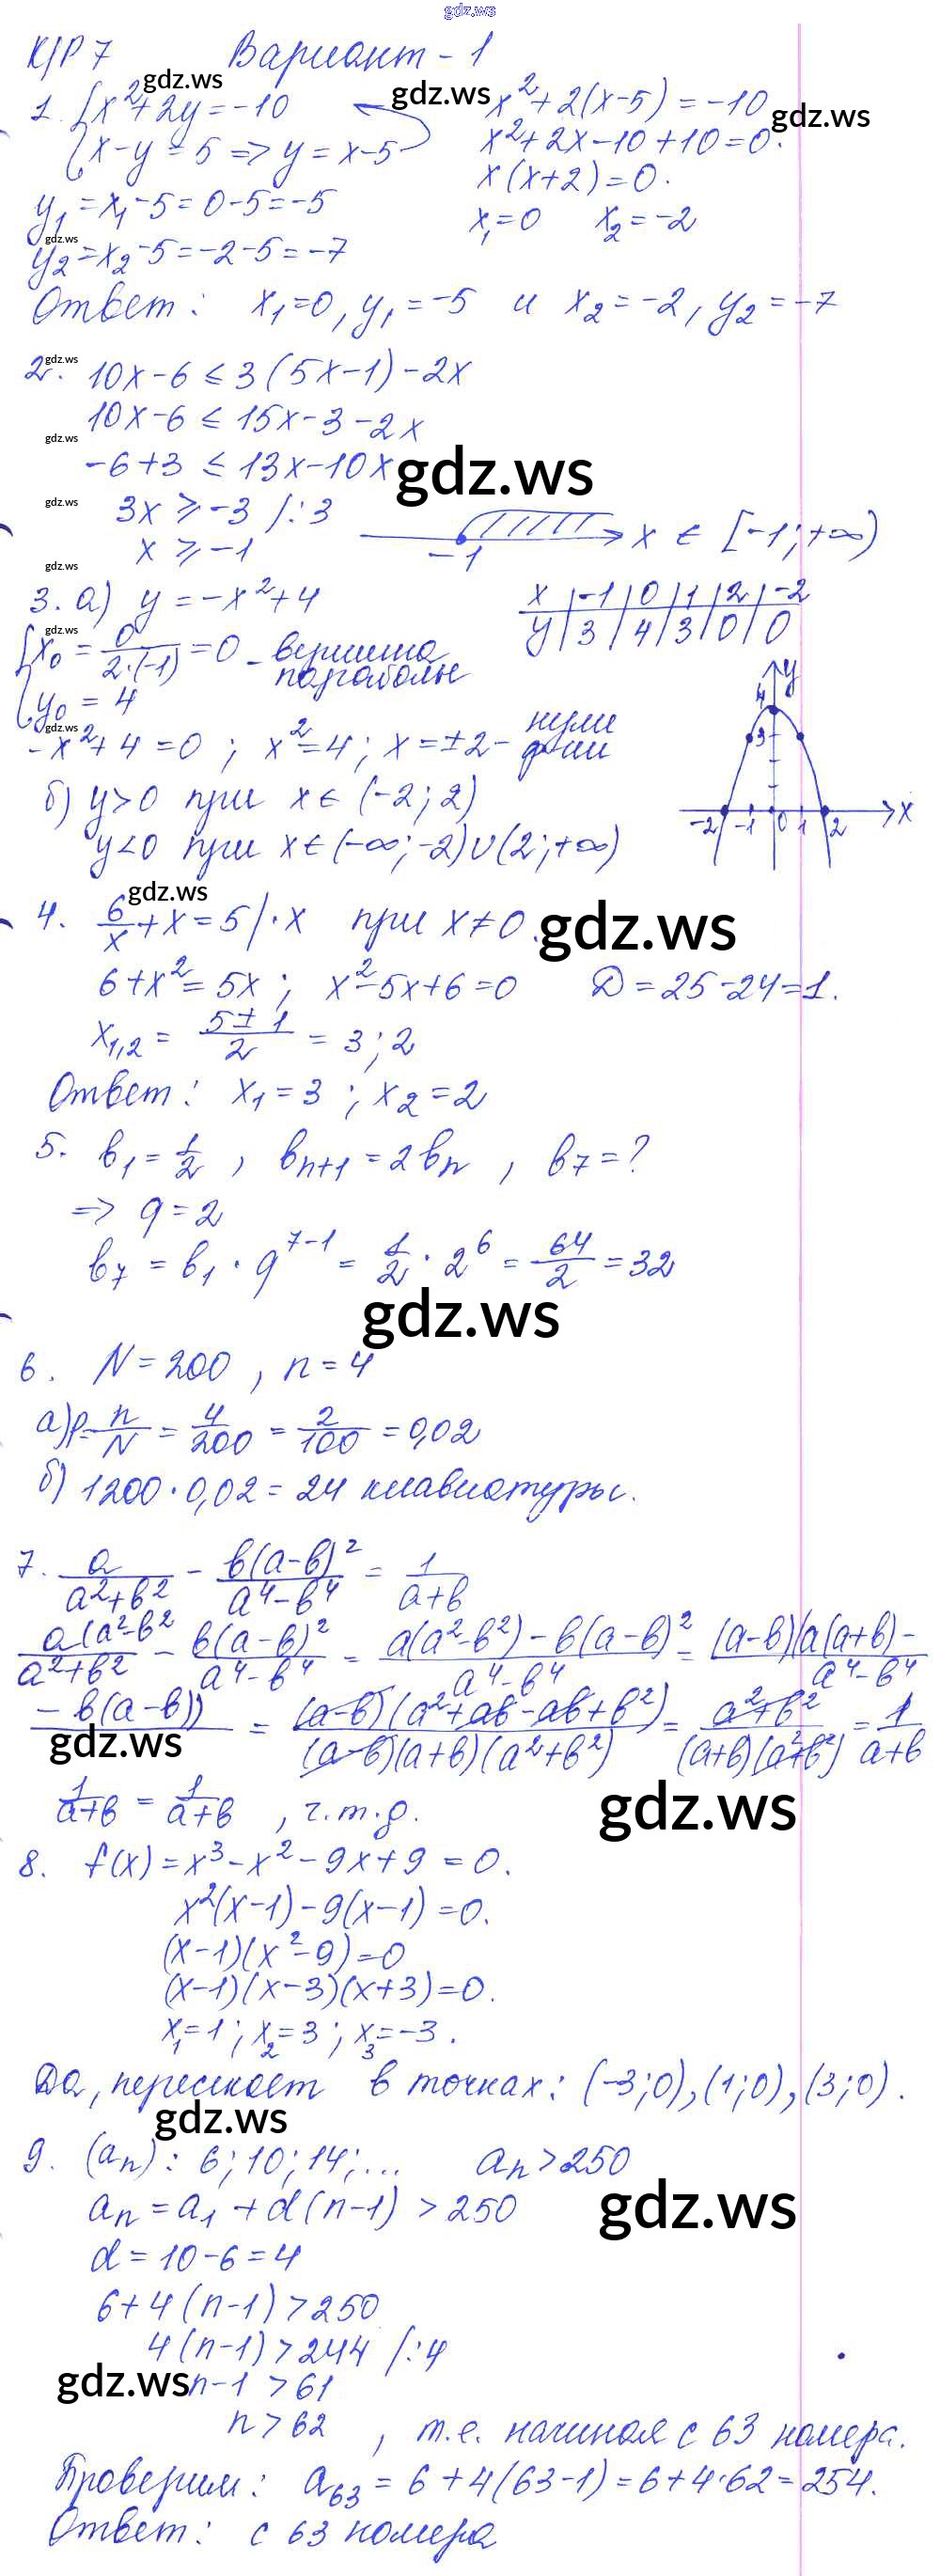 gdz.ws
К/Р 7 Вариант - 1
gdz.ws gdz.ws gdz.ws
1. { x²+2y = -10 x²+2(x-5) = -10
x-y = 5 => y = x-5 x²+2x-10+10=0.
x(x+2)=0.
y₁ = x₁-5 = 0-5 = -5 x₁=0 x₂=-2
gdz.ws
y₂ = x₂-5 = -2-5 = -7
Ответ: x₁=0, y₁=-5 и x₂=-2, y₂=-7
gdz.ws
2. 10x-6 ≤ 3(5x-1)-2x
10x-6 ≤ 15x-3-2x
gdz.ws
-6+3 ≤ 13x-10x gdz.ws
gdz.ws 3x ≥ -3 /:3
x ≥ -1 -1 x ∈ [-1; +∞)
gdz.ws
3. а) y = -x²+4 x | -1 | 0 | 1 | 2 | -2
y | 3 | 4 | 3 | 0 | 0
gdz.ws
{ x₀ = 0/(2·(-1)) = 0 - вершина параболы
y₀ = 4
gdz.ws
-x²+4 = 0; x²=4; x=±2 - нули ф-ии
y 4 3 -2 -1 0 1 2 x
б) y>0 при x ∈ (-2; 2)
y<0 при x ∈ (-∞; -2)∪(2; +∞)
gdz.ws
4. 6/x + x = 5 /·x при x ≠ 0. gdz.ws
6+x² = 5x; x²-5x+6=0 D = 25-24=1.
x₁,₂ = (5±1)/2 = 3; 2
Ответ: x₁=3; x₂=2
5. b₁ = 1/2, bₙ₊₁ = 2bₙ, b₇ = ?
=> q = 2
b₇ = b₁ · q⁷⁻¹ = 1/2 · 2⁶ = 64/2 = 32
gdz.ws
6. N = 200, n = 4
а) p = n/N = 4/200 = 2/100 = 0,02
б) 1200 · 0,02 = 24 клавиатуры.
7. a/(a²+b²) - b(a-b)²/(a⁴-b⁴) = 1/(a+b)
a(a²-b²/(a²+b²) - b(a-b)²/(a⁴-b⁴) = (a(a²-b²)-b(a-b)²)/(a⁴-b⁴) = (a-b)(a(a+b)-/(a⁴-b⁴)
-b(a-b)) = (a-b)(a²+ab-ab+b²)/((a-b)(a+b)(a²+b²)) = (a²+b²)/((a+b)(a²+b²)) = 1/(a+b)
gdz.ws
1/(a+b) = 1/(a+b), ч.т.д. gdz.ws
8. f(x) = x³-x²-9x+9 = 0.
x²(x-1)-9(x-1) = 0.
(x-1)(x²-9)=0
(x-1)(x-3)(x+3)=0.
x₁=1; x₂=3; x₃=-3.
Да, пересекает в точках: (-3;0), (1;0), (3;0).
gdz.ws
9. (aₙ): 6; 10; 14; ... aₙ > 250
aₙ = a₁ + d(n-1) > 250 gdz.ws
d = 10-6 = 4
6+4(n-1) > 250
4(n-1) > 244 /:4
gdz.ws n-1 > 61
n > 62, т.е. начиная с 63 номера.
Проверим: a₆₃ = 6+4(63-1) = 6+4·62 = 254.
Ответ: с 63 номера